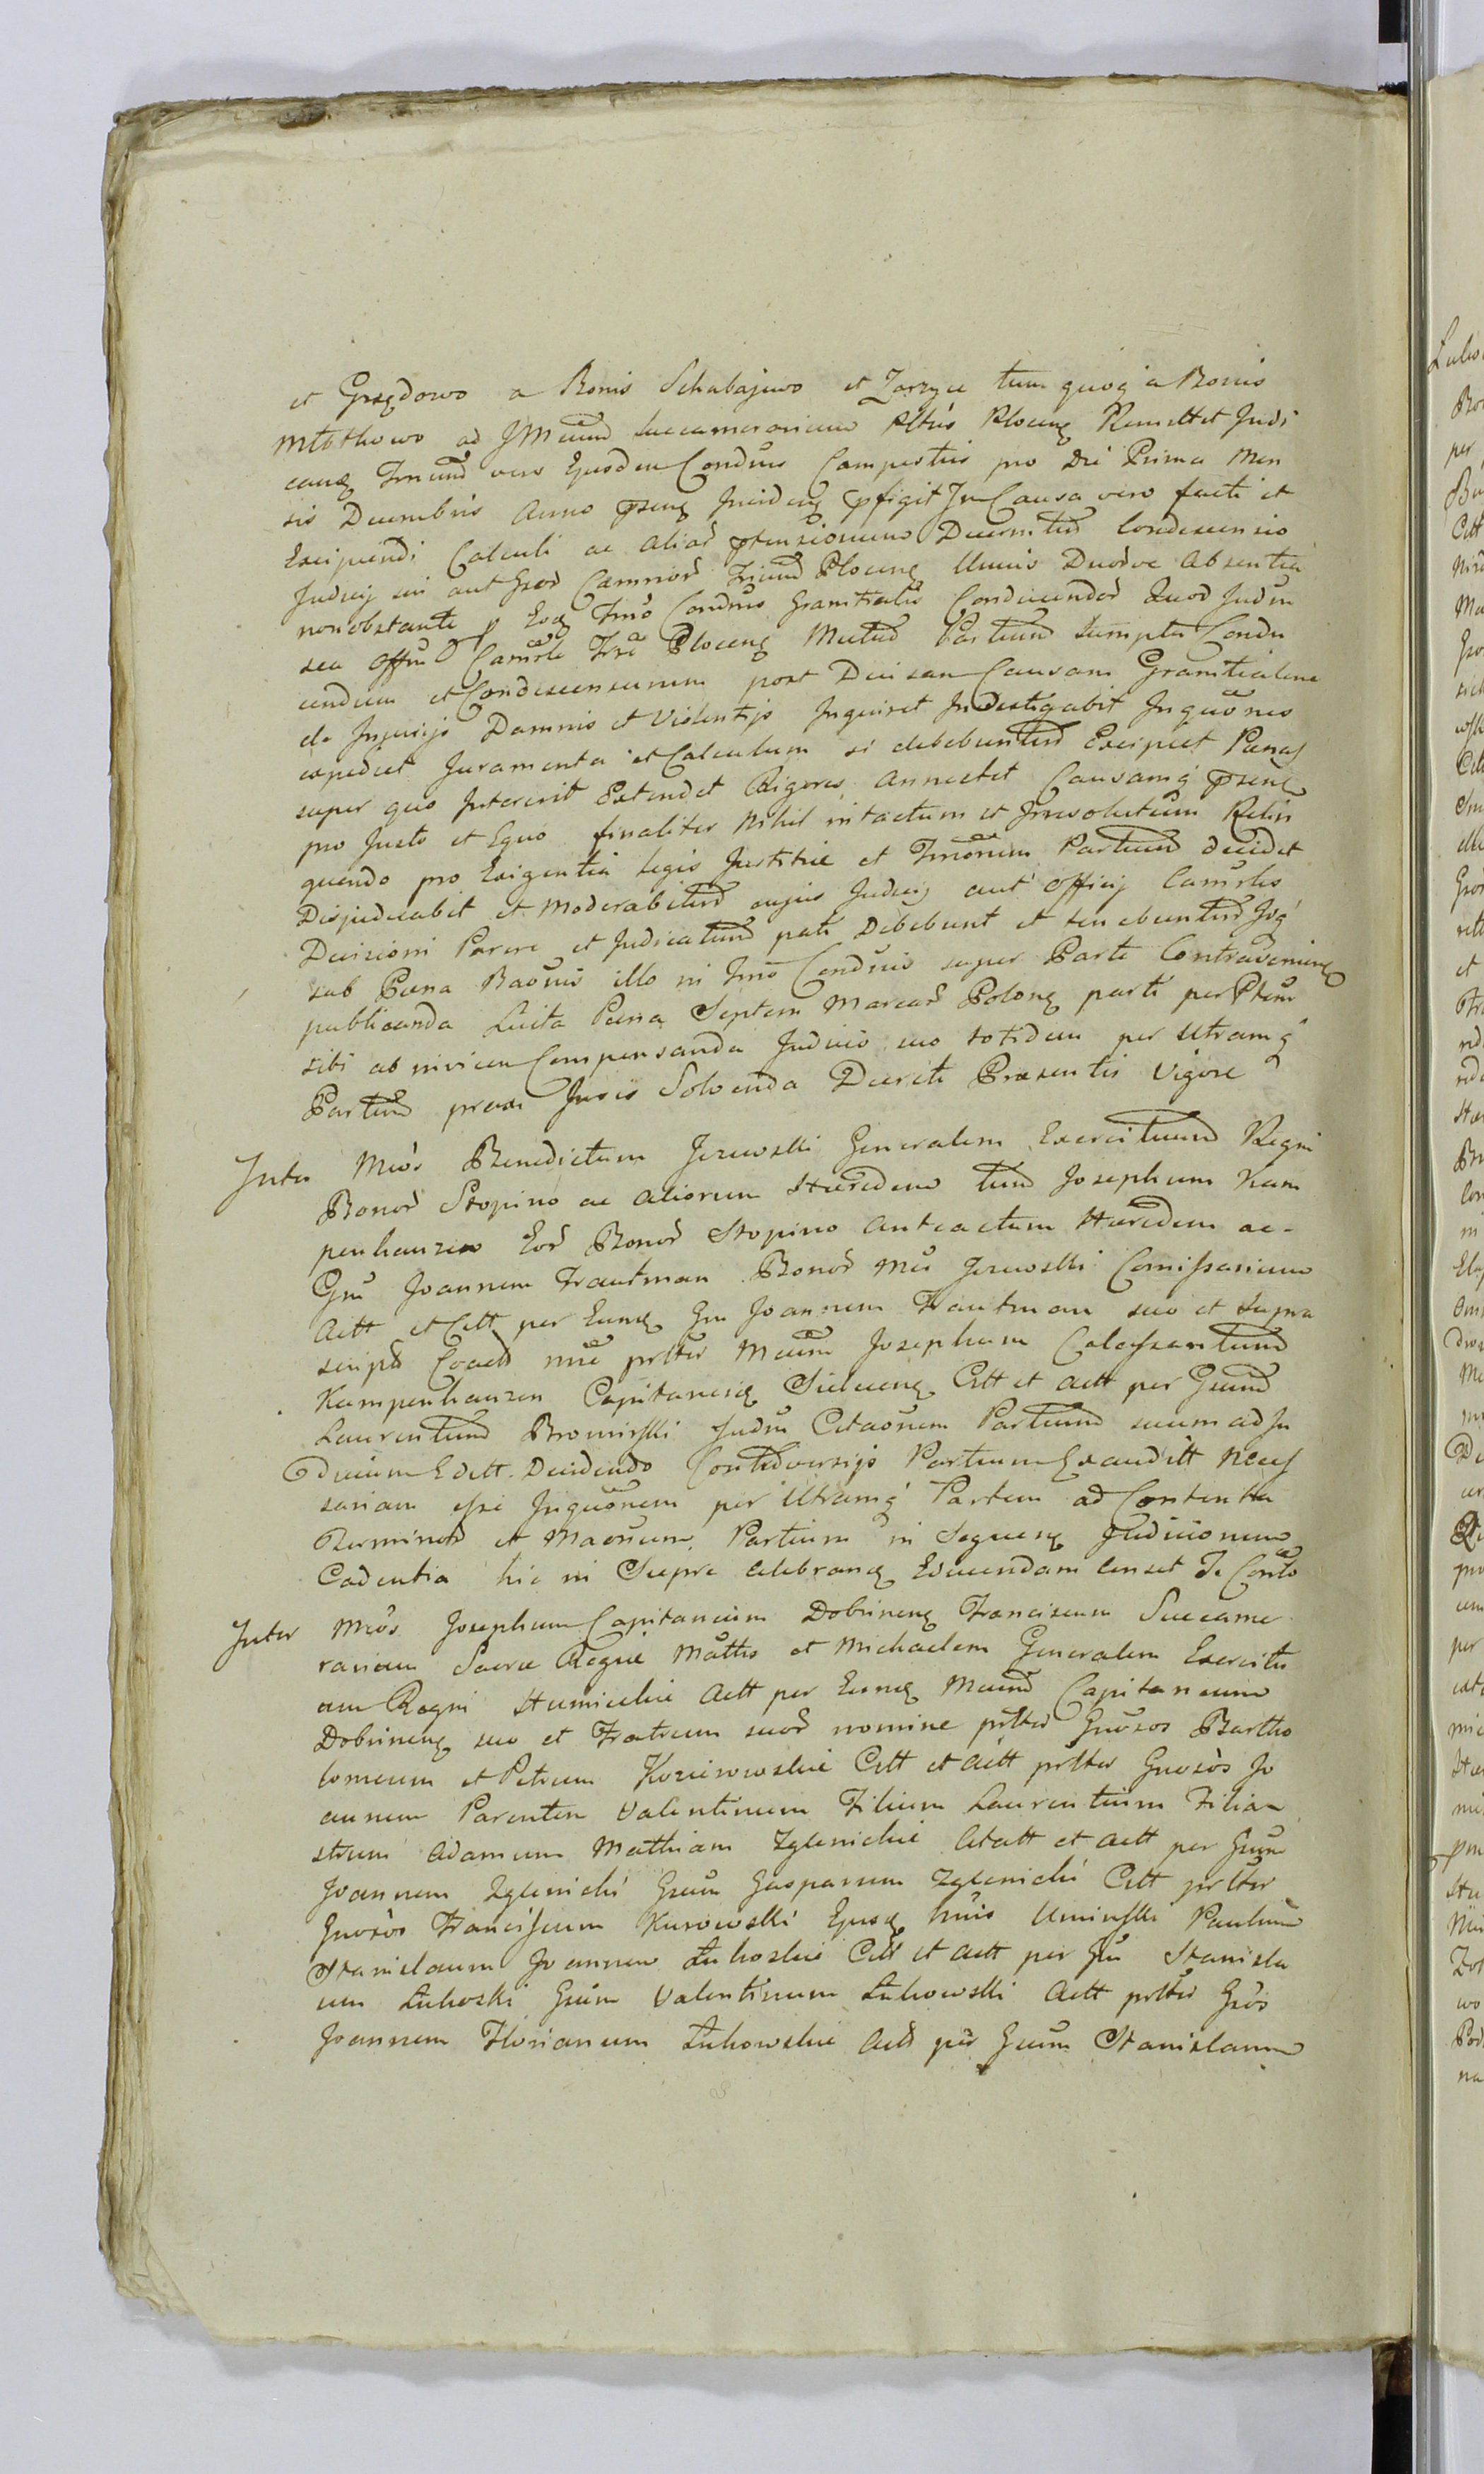 et Grzędowo a Bonis Schabajewo et Zarzyce tum quoq a Bonis
ad JMcum Succamerarium Pltus Ploceng Remittet Judi
cang Trnum vero Ejusdem Condus Campestris pro Die Prima Men
sis Decembris Anno pseng Incideng pfigit In Causa vero facti et
Excipiendi Calculi ac aliar ptensionum Decernitur Condescensio
Judicij sui aut Gsor Camrior Trrum Ploceng Unius Duorve Absentia
nonobstante p Eog Trno Condus Granitialis Conducendor Quod Judm
seu Offm Camrle Trre Ploceng Mutuo Partium Sumptu Condu
cendum et Condescensurum post Decisam Causam Granitialem
de Injurijs Damnis et Violentijs Inquiret Investigabit Inquones
expediet Juramenta et Calculum si debebuntur Excipiet Pænas
super quo Intererit Extendet Rigores Annectet Causamq pseng
pro Justo et Equo finaliter Nihil intactum et Irresolutum Relin
quendo pro Exigentia Legis Justitiæ et Partium decidet
Disjudicabit et Moderabitur cujus Judicij aut Officij Camrlis
Decisioni Parere et Judicatum pati Debebunt et tenebuntur Jdq
sub Pæna Baonis illo in Trno Condus super Parte Contraveniens
publicanda Luita Pæna Septem Marcar Polong parti per Ptem
sibi ab invicem Compensanda Judicio suo totidem per Utramq
Partium Juris Solvenda Decreti Præsentis Vigore
Inter Mcos Benedictum Jezewski Generalem Exercituum Regni
Bonor Stopino ac aliorum Hæredem tum Josephum Kam
penhauzen Eor Bonor Stopino Anteactum Hæredem ac
Gm Joannem Trautman Bonor Mci Jezewski Comissarium
Actt et Citt per Eung Gm Joannem Trautman suo et Supra
script Coact nne prltter Mcum Josephum
Kampenhauzen Capitaneig Citt et Actt per Gsum
Laurentium Bromirski Judm Citaonem Partium suum ad Ju
dicium Edttt Decidendo Controversijs Partium Exauditt Neces
sariam esse Inquonem per Utramq Partem ad Contenta
Terminor et Maonum Partium in Sequeng Judiciorum
Cadentia hic in Sierpc celebrang Educendam censet
Inter Mcos Josephum Capitaneum Dobrineng Franciscum Succame
rarium Sacræ Regiæ Mattis et Michaelem Generalem Exercitu
um Regni Humieckie Actt per Eung Mcum Capitaneum
Dobrineng suo et Fratrum suor nomine prltter Gnosos Bartho
lomeum et Petrum Citt et Actt prltter Gnosos Jo
annem Parentem Valentinum Filium Laurentium Filia
strum Adamum Mathiam Zglenickie Citatt et Actt per Gsum
Joannem Zglenicki Gsum Gasparum Zglenicki Citt prltter
Gnosos Franciscum Kurowski Ejusq Uminski Paulum
Stanislaum Joannem Łukoskie Citt et Actt per Gm Stanisla
um Łukoski Gsum Valentinum Łukowski Actt prltter Gsos
Joannem Florianum Łukowskie Actt per Gsum Stanislaum